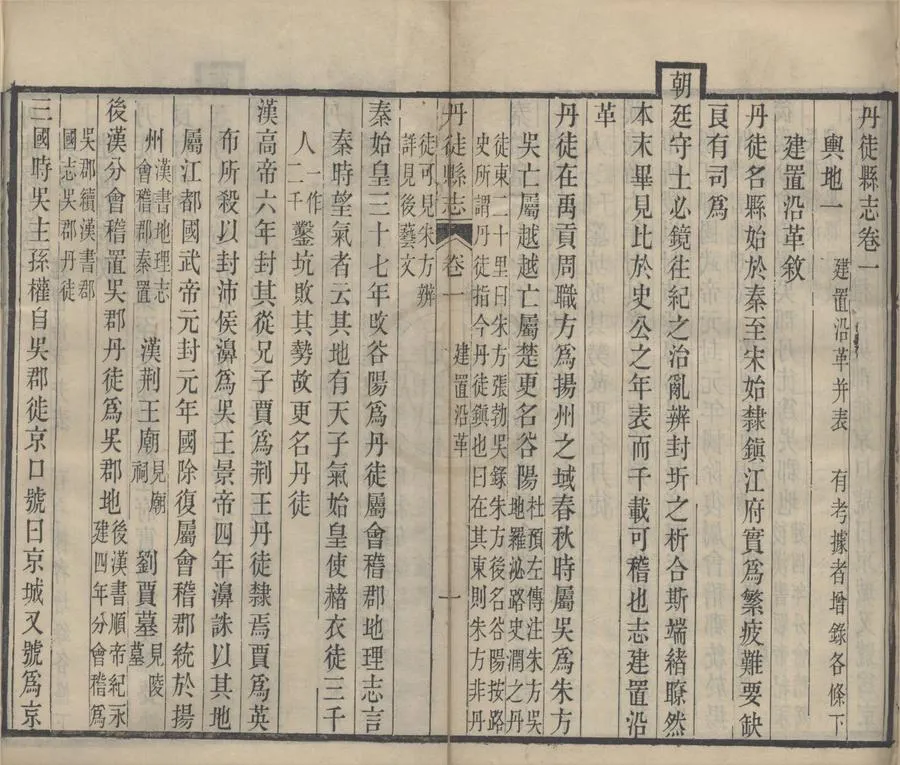 丹徒縣志卷一
輿地一 建置沿革并表 有考據者增錄各條下
建置沿革敘
丹徒名縣始於秦至宋始隸鎮江府實爲繁疲難要缺
良有司爲
朝廷守土必鏡往紀之治亂辨封圻之析合斯端緒瞭然
本末畢見比於史公之年表而千載可稽也志建置沿
革
丹徒在禹貢周職方爲揚州之域春秋時屬吳爲朱方
吳亡屬越越亡屬楚更名谷陽杜預左傳注朱方吳
地羅泌路史潤之丹
徒東二十里曰朱方張勃吳錄朱方後名谷陽按路
史所謂丹徒指今丹徒鎮也曰在其東則朱方非丹
丹徒縣志 卷一 建置沿革 一
徒可見朱方辨
詳見後藝文
秦始皇三十七年改谷陽爲丹徒屬會稽郡地理志言
秦時望氣者云其地有天子氣始皇使赭衣徒三千
人一作
二千鑿坑敗其勢故更名丹徒
漢高帝六年封其從兄子賈爲荆王丹徒隸焉賈爲英
布所殺以封沛侯濞爲吳王景帝四年濞誅以其地
屬江都國武帝元封元年國除復屬會稽郡統於揚
州漢書地理志
會稽郡秦置漢荆王廟見廟
祠劉賈墓見陵
墓
後漢分會稽置吳郡丹徒爲吳郡地後漢書順帝紀永
建四年分會稽爲
吳郡續漢書郡
國志吳郡丹徒
三國時吳主孫權自吳郡徙京口號曰京城又號爲京